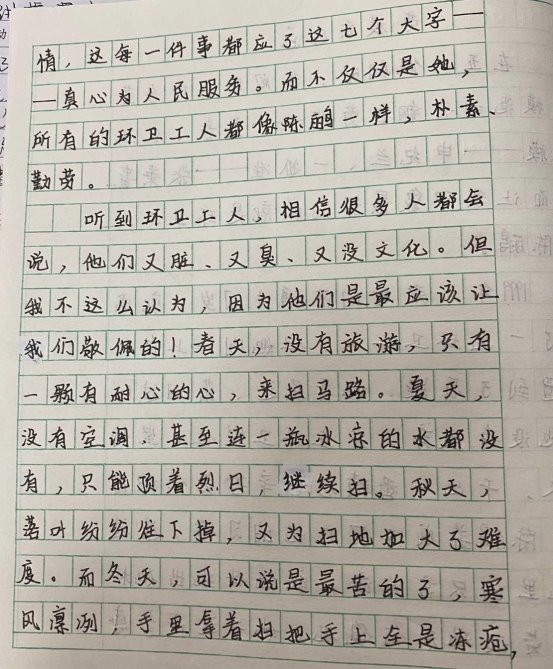 情，这每一件事都应了这七个大字—
—真心为人民服务。而不仅仅是她，
所有的环卫工人都像陈鹃一样，朴素、
勤劳。
听到环卫工人，相信很多人都会
说，他们又脏、又臭、又没文化。但
我不这么认为，因为他们是最应该让
我们敬佩的！春天，没有旅游，只有
一颗有耐心的心，来扫马路。夏天，
没有空调，甚至连一瓶冰凉的水都没
有，只能顶着烈日，继续扫。秋天，
落叶纷纷往下掉，又为扫地加大了难
度。而冬天，可以说是最苦的了，寒
风凛冽，手里拿着扫把手上全是冻疮，